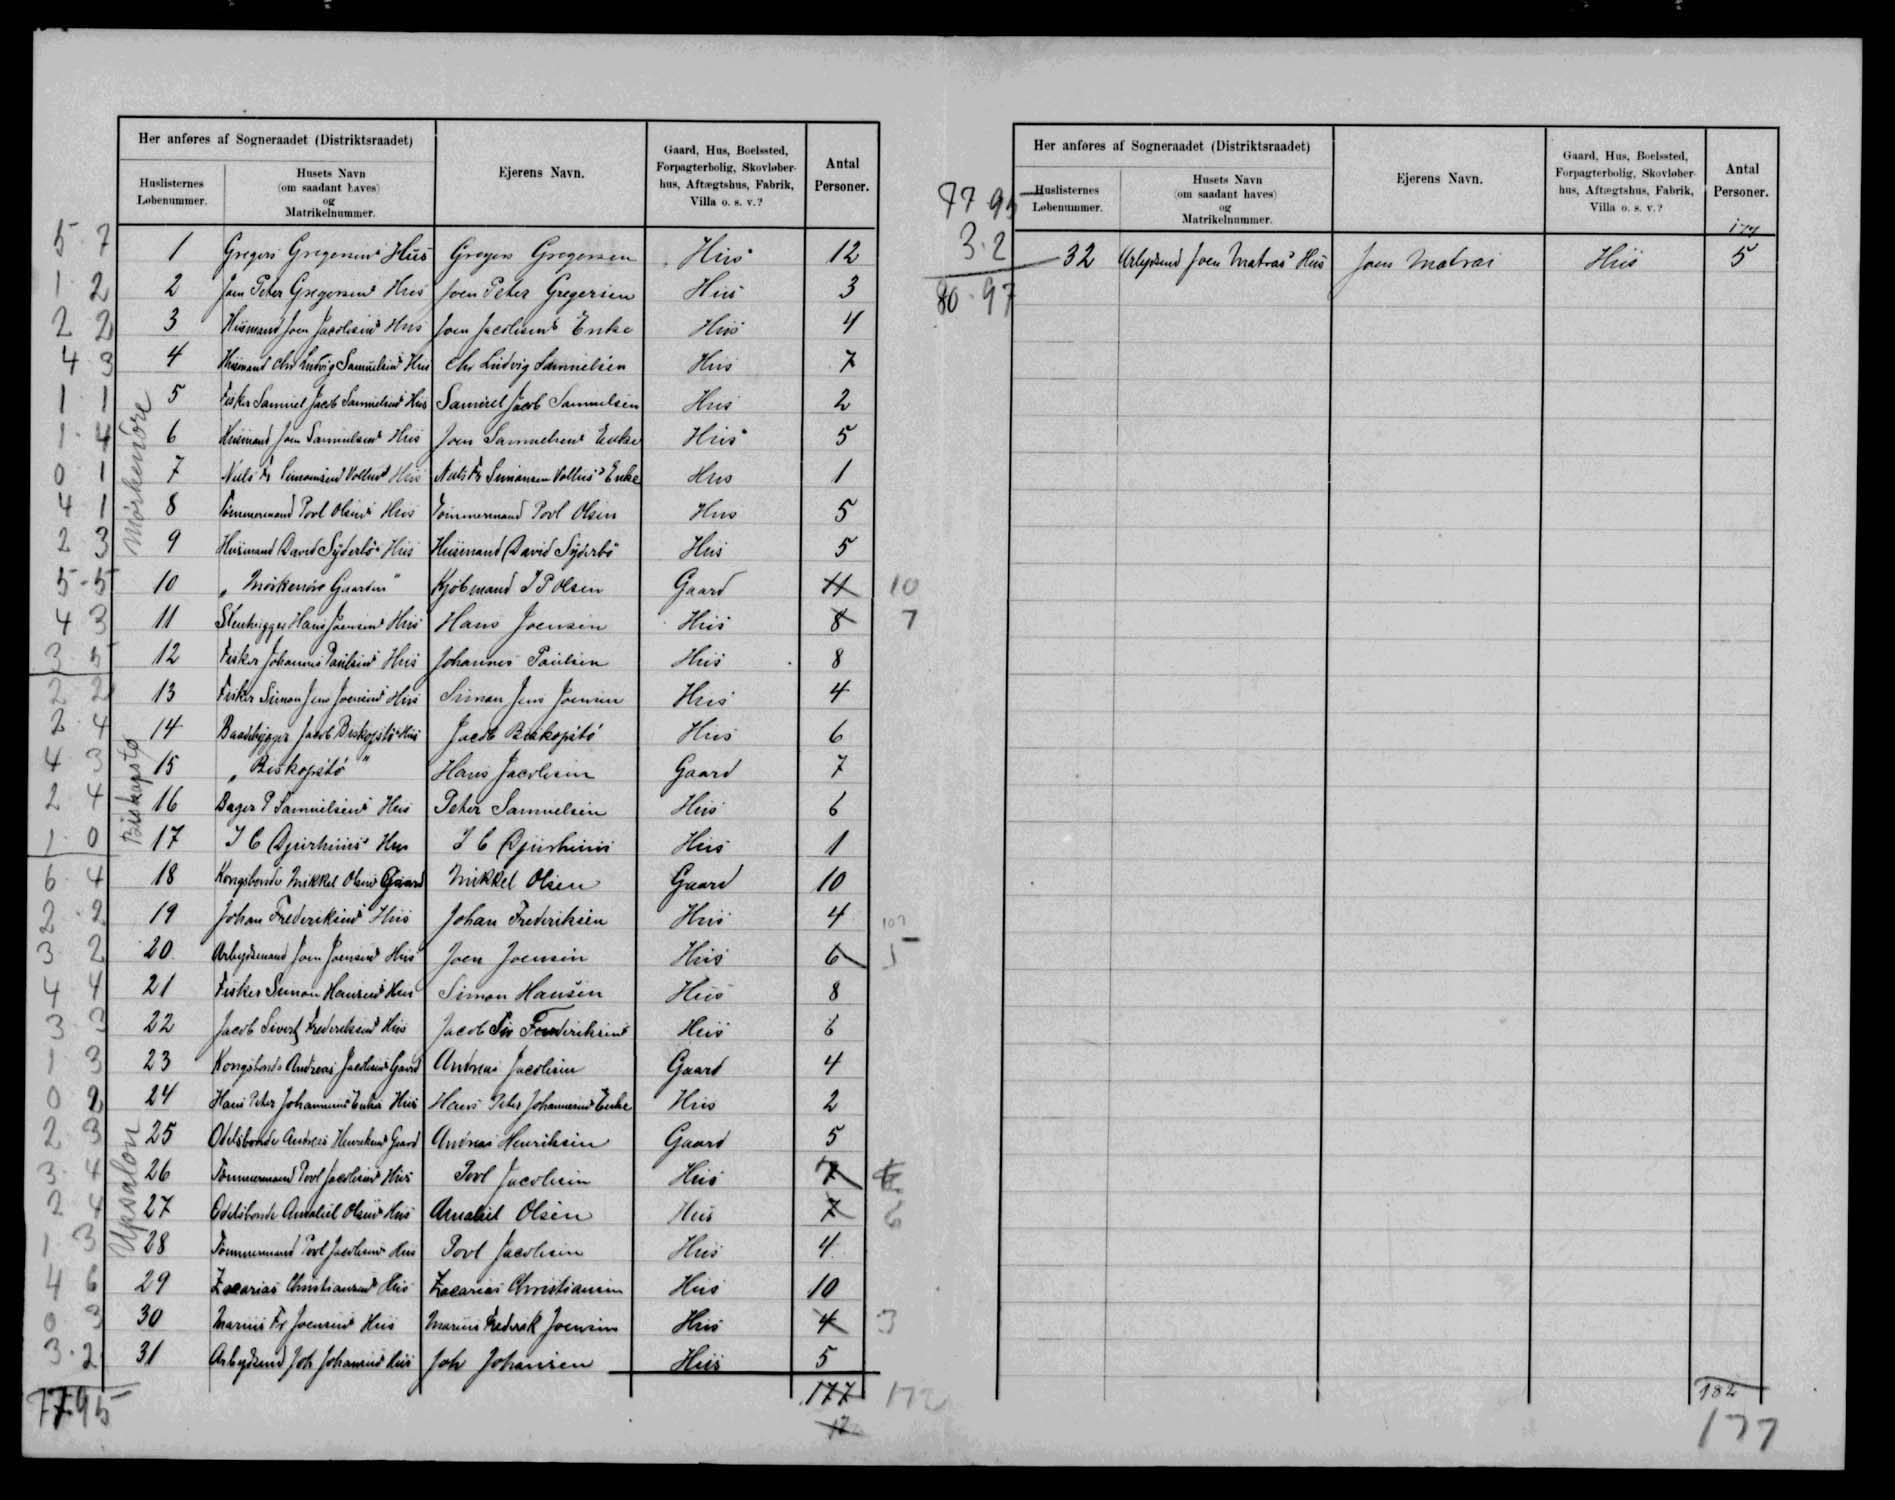 Her anføres af Sogneraadet (Distriktsraadet)
Huslisternes Løbenummer.
Husets Navn (om saadant haves) og Matrikelnummer.
Ejerens Navn.
Gaard, Hus, Boelssted, Forpagterbolig, Skovløberhus, Aftægtshus, Fabrik, Villa o. s. v.?
Antal Personer.
Mörkenöre
5 7 1 Gregers Gregersens Hus Gregers Gregersen Hus 12
1 2 2 Joen Peter Gregersens Hus Joen Peter Gregersen Hus 3
2 2 3 Husmand Joen Jacobsens Hus Joen Jacobsens Enke Hus 4
4 3 4 Husmand Chr Ludvig Samuelsens Hus Chr Ludvig Samuelsen Hus 7
1 1 5 Fisker Samuel Jacob Samuelsens Hus Samuel Jacob Samuelsen Hus 2
1 4 6 Husmand Joen Samuelsens Hus Joen Samuelsens Enke Hus 5
0 1 7 Niels Fr Simonsens Hus Niels Fr Simonsen Enke Hus 1
4 1 8 Tömmermand Povl Olsens Hus Tömmermand Povl Olsen Hus 5
2 3 9 Husmand David Syderbö Hus Husmand David Syderbö Hus 5
5-5 10 "Mörkenöre Gaarden" Kjöbmand J P Olsen Gaard 11 10
4 3 11 Stenhugger Hans Joensens Hus Hans Joensen Hus 8 7
3 5 12 Fisker Johannes Paulsens Hus Johannes Paulsen Hus 8
Biskopstö
2 2 13 Fisker Simon Jens Joensens Hus Simon Jens Joensen Hus 4
2 4 14 Baadebygger Jacob Biskopstö Hus Jacob Biskopstö Hus 6
4 3 15 "Biskopstö" Hans Jacobsen Gaard 7
2 4 16 Bager P Samuelsens Hus Peter Samuelsen Hus 6
1 0 17 J C Djurhuus' Hus J C Djurhuus Hus 1
Upsalon
6 4 18 Kongsbonde Mikkel Olsens Gaard Mikkel Olsen Gaard 10
2 2 19 Johan Frederiksens Hus Johan Frederiksen Hus 4
3 2 20 Arbejdsmand Joen Joensens Hus Joen Joensen Hus 6 5
4 4 21 Fisker Simon Hansens Hus Simon Hansen Hus 8
3 3 22 Jacob Sivert Frederiksens Hus Jacob Siv Frederiksens Hus 6
1 3 23 Kongsbonde Andreas Jacobsens Gaard Andreas Jacobsen Gaard 4
0 2 24 Hans Peter Johannesens Enkes Hus Hans Peter Johannesens Enke Hus 2
2 3 25 Odelsbonde Andreas Henriksens Gaard Andreas Henriksen Gaard 5
3 4 26 Tömmermand Povl Jacobsens Hus Povl Jacobsen Hus 7
2 4 27 Odelsbonde Olsens Hus Olsen Hus 7 6
1 3 28 Tömmermand Povl Jacobsens Hus Povl Jacobsen Hus 4
4 6 29 Zacarias Christiansens Hus Zacarias Christiansen Hus 10
0 3 30 Marius Fr Joensens Hus Marius Frederik Joensen Hus 4 3
3 2 31 Arbejdsmd Joh Johansens Hus Joh Johansen Hus 5
77 95 177 172
Her anføres af Sogneraadet (Distriktsraadet)
Huslisternes Løbenummer.
Husets Navn (om saadant haves) og Matrikelnummer.
Ejerens Navn.
Gaard, Hus, Boelssted, Forpagterbolig, Skovløberhus, Aftægtshus, Fabrik, Villa o. s. v.?
Antal Personer.
77 95
177
3 2 32 Arbejdsmd Joen Matras' Hus Joen Matras Hus 5
80 97
182
177